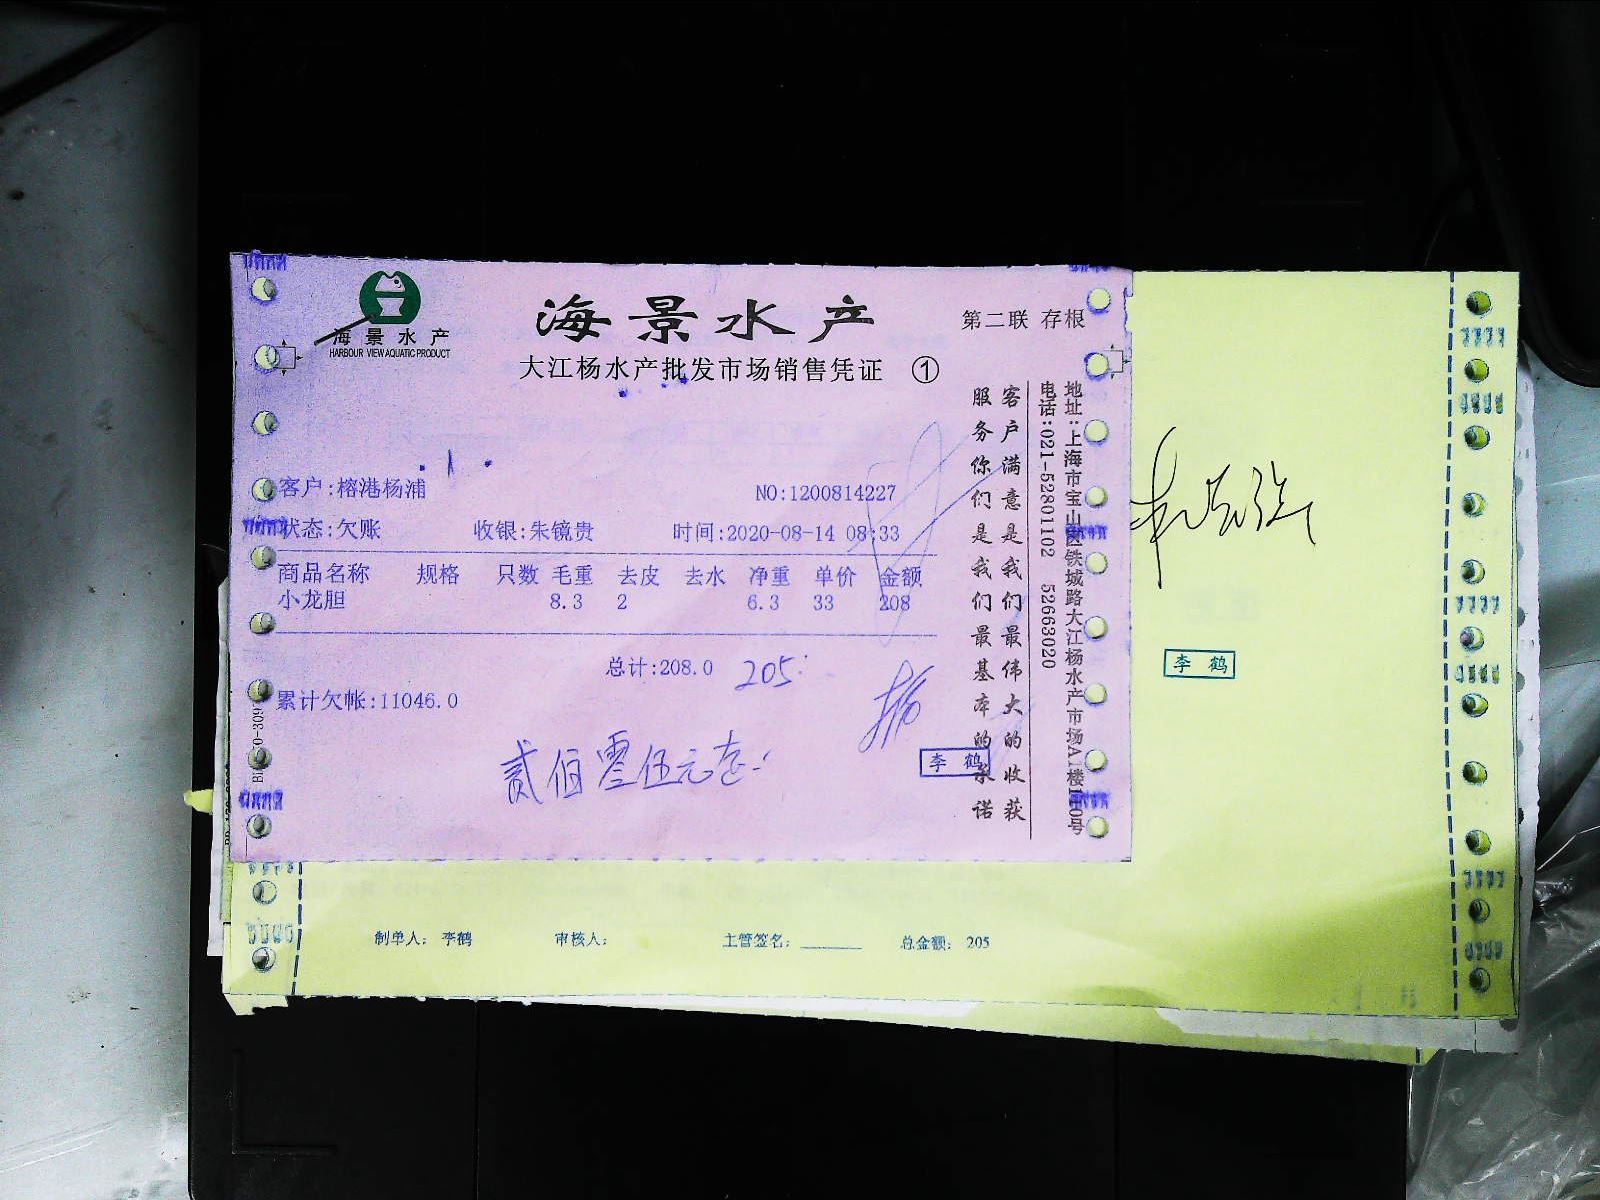 海景水产
HARBOUR VIEW AQUATIC PRODUCT
海景水产
第二联 存根
大江杨水产批发市场销售凭证 ①
客户:榕港杨浦
NO:1200814227
状态:欠账 收银:朱镜贵 时间:2020-08-14 08:33
商品名称 规格 只数 毛重 去皮 去水 净重 单价 金额
小龙胆 8.3 2 6.3 33 208
总计:208.0 205
累计欠帐:11046.0
贰佰零伍元
李鹤
客户满意是我们最伟大的收获
服务你们是我们最基本的承诺
地址:上海市宝山区铁城路大江杨水产市场A1楼110号
电话:021-52801102 52663020
李鹤
制单人: 李鹤 审核人: 主管签名: 总金额: 205